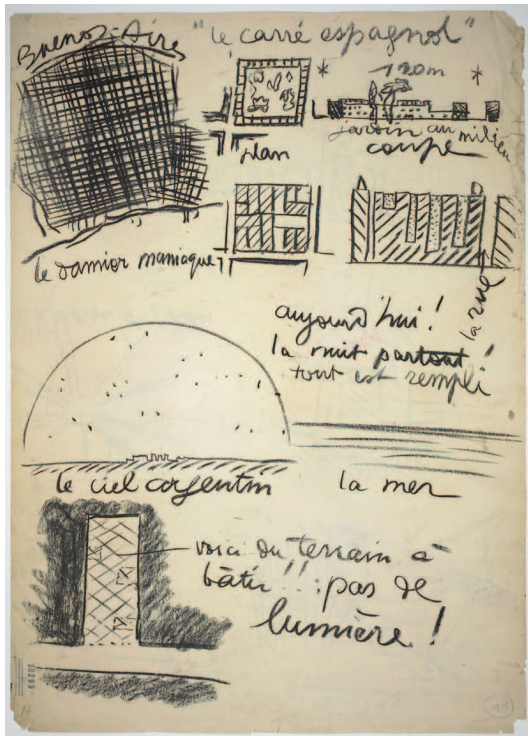 Buenos-Aires
"le carré espagnol"
120m
plan
jardin au milieu
coupe
le damier maniaque
la rue
aujourd'hui!
la nuit partout!
tout est rempli
le ciel argentin
la mer
voici du terrain à
bâtir!! : pas de
lumière!
30299